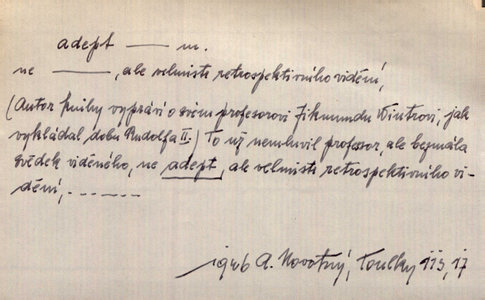 adept —— m.
ne ——, ale velmistr retrospektivního vidění,
(Autor knihy vypráví o svém profesorovi Zikmundu Wintrovi, jak
vykládal dobu Rudolfa II.) To už nemluvil profesor, ale bezmála
svědek viděného, ne adept, ale velmistr retrospektivního vi-
dění, - - - - - -
1946 A. Novotný, Toulky 113, 17